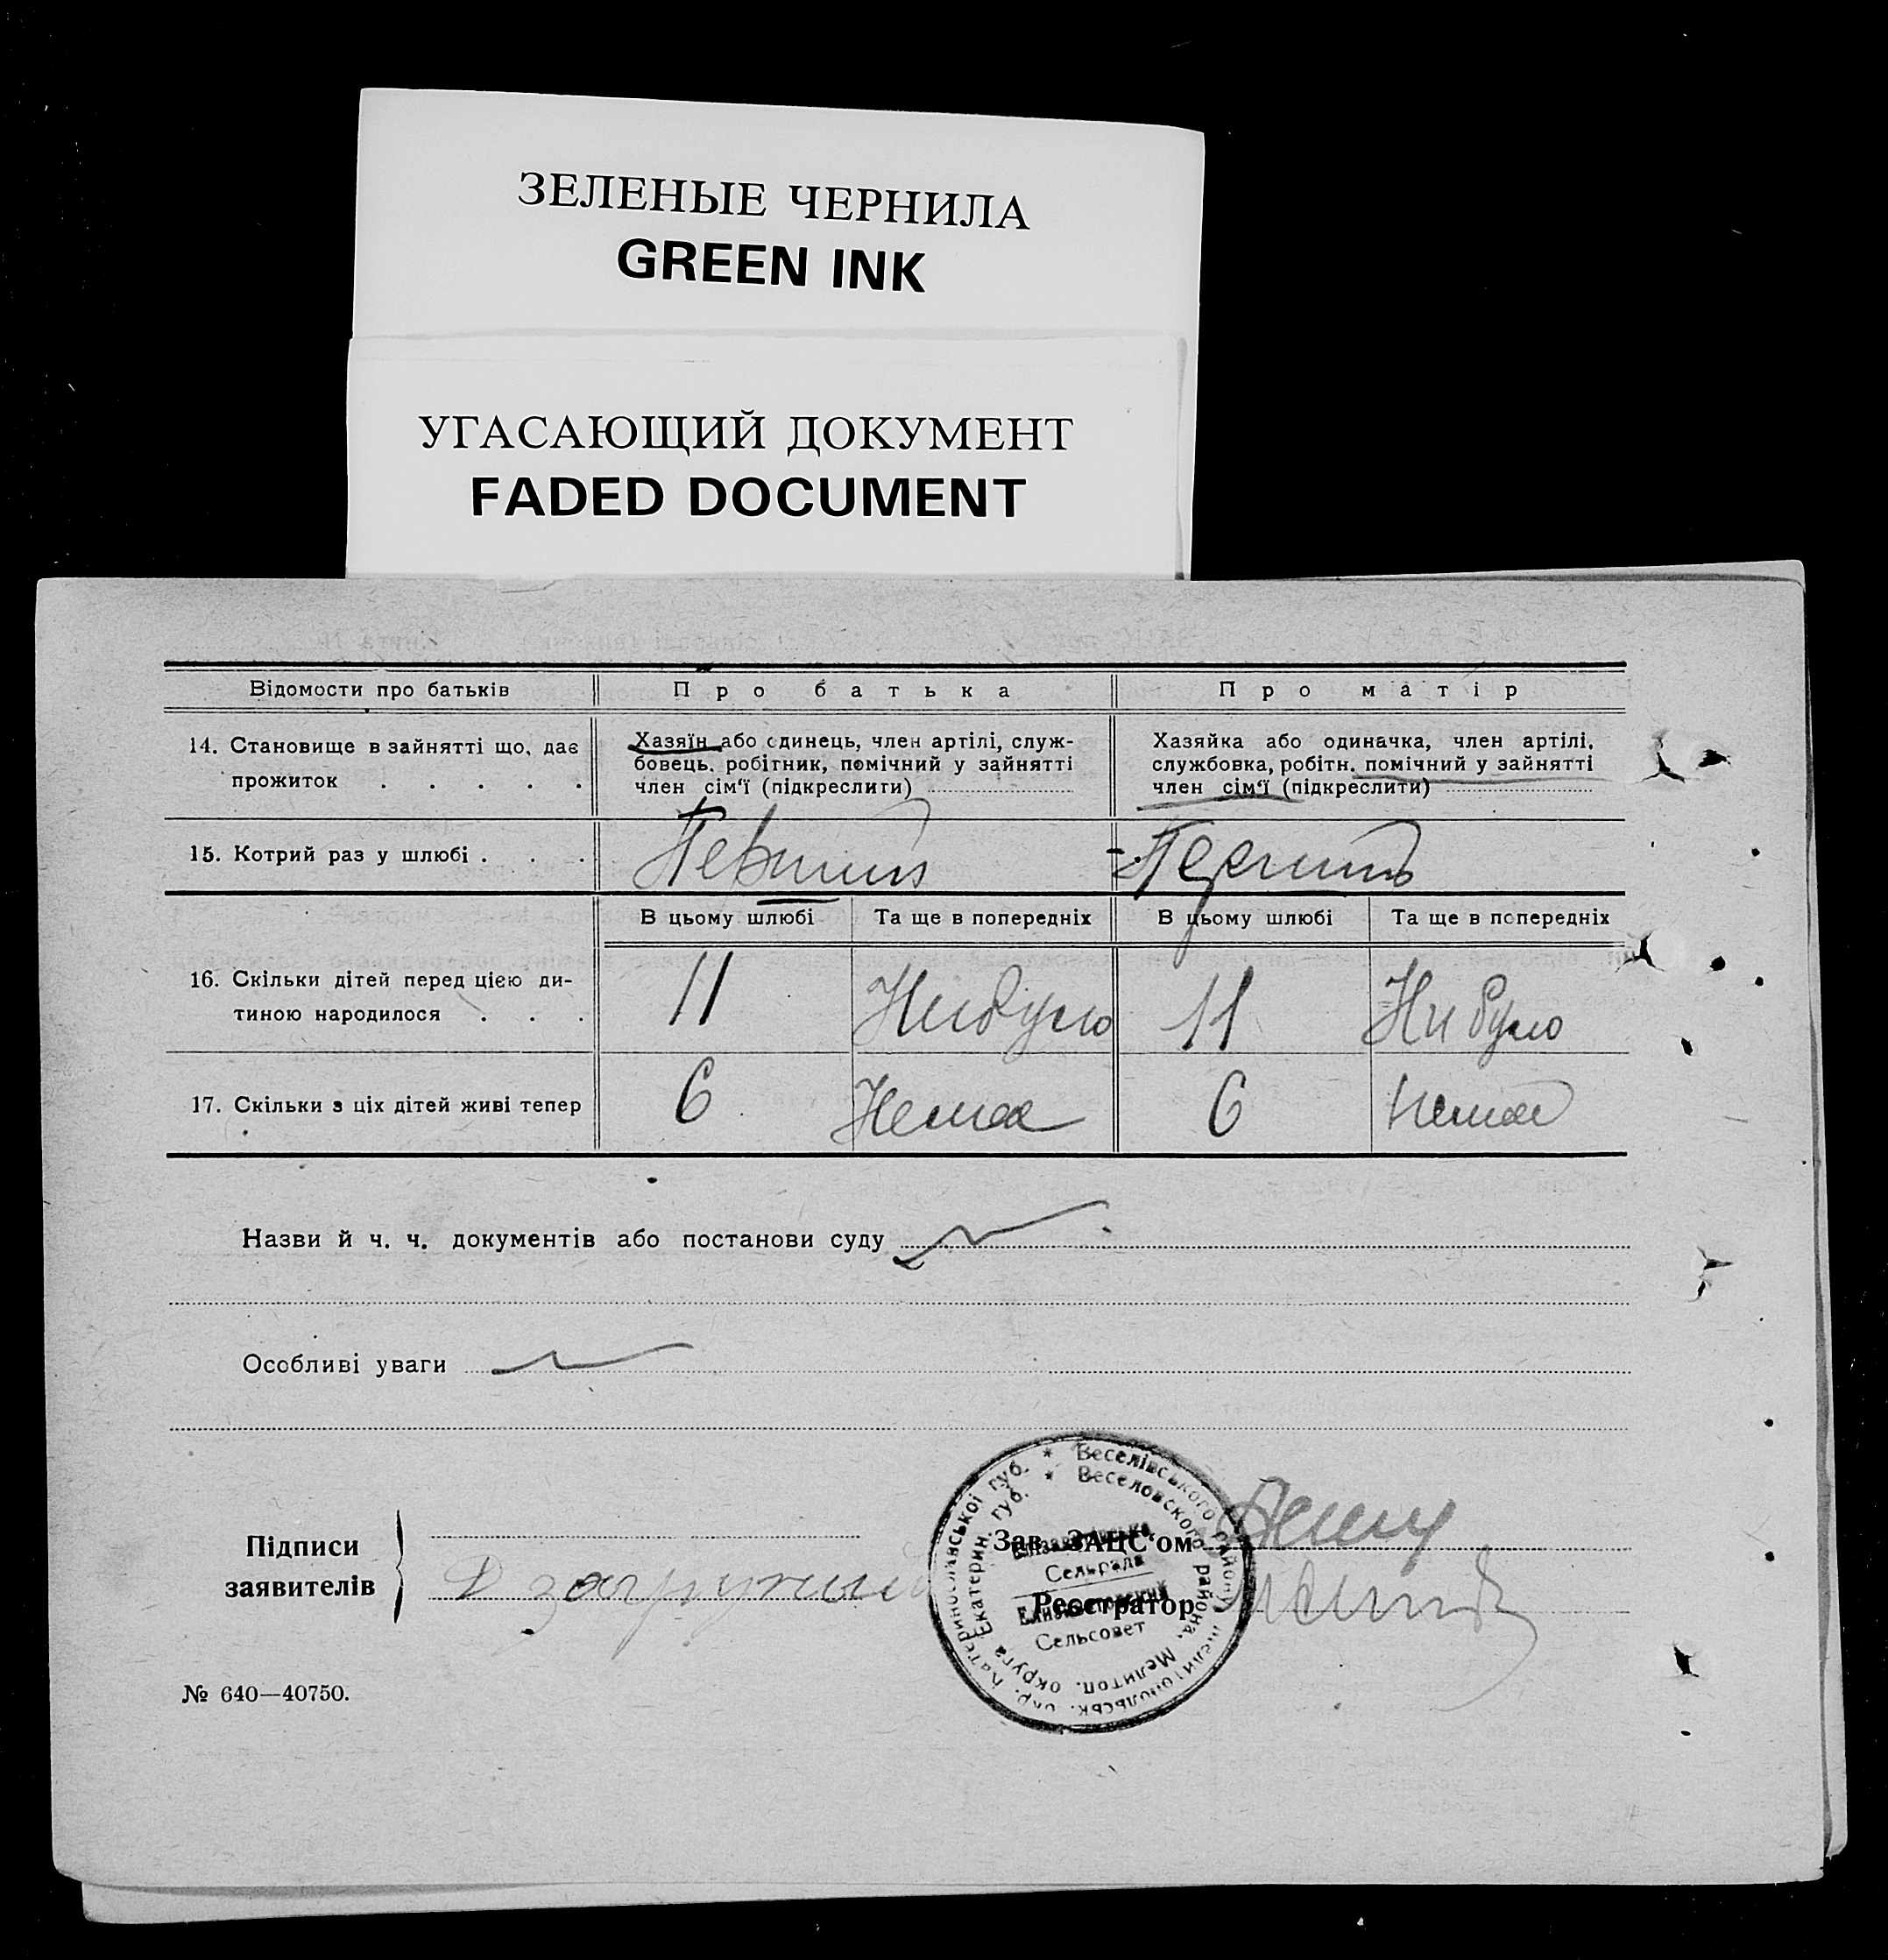 ЗЕЛЕНЫЕ ЧЕРНИЛА
GREEN INK
УГАСАЮЩИЙ ДОКУМЕНТ
FADED DOCUMENT
Відомости про батьків Про батька Про матір
14. Становище в зайнятті що, дає прожиток . . . . .
Хазяїн або одинець, член артілі, служ-
бовець, робітник, помічний у зайнятті
член сім'ї (підкреслити)
Хазяйка або одиначка, член артілі,
службовка, робітн. помічний у зайнятті
член сім'ї (підкреслити)
15. Котрий раз у шлюбі . . . Первий Первий
В цьому шлюбі Та ще в попередніх В цьому шлюбі Та ще в попередніх
16. Скільки дітей перед цією ди-
тиною народилося . . . 11 Нибуло 11 Ни було
17. Скільки з ціх дітей живі тепер 6 Немає 6 Немає
Назви й ч. ч. документів або постанови суду
Особливі уваги
Підписи
заявителів
Зав. ЗАЦС'ом
Реєстратор
* Веселівського району Мелитопольськ. окр. Катеринославської губ.
* Веселовского района, Мелитоп. округа Екатерин. губ.
Сельрада
Сельсовет
№ 640—40750.